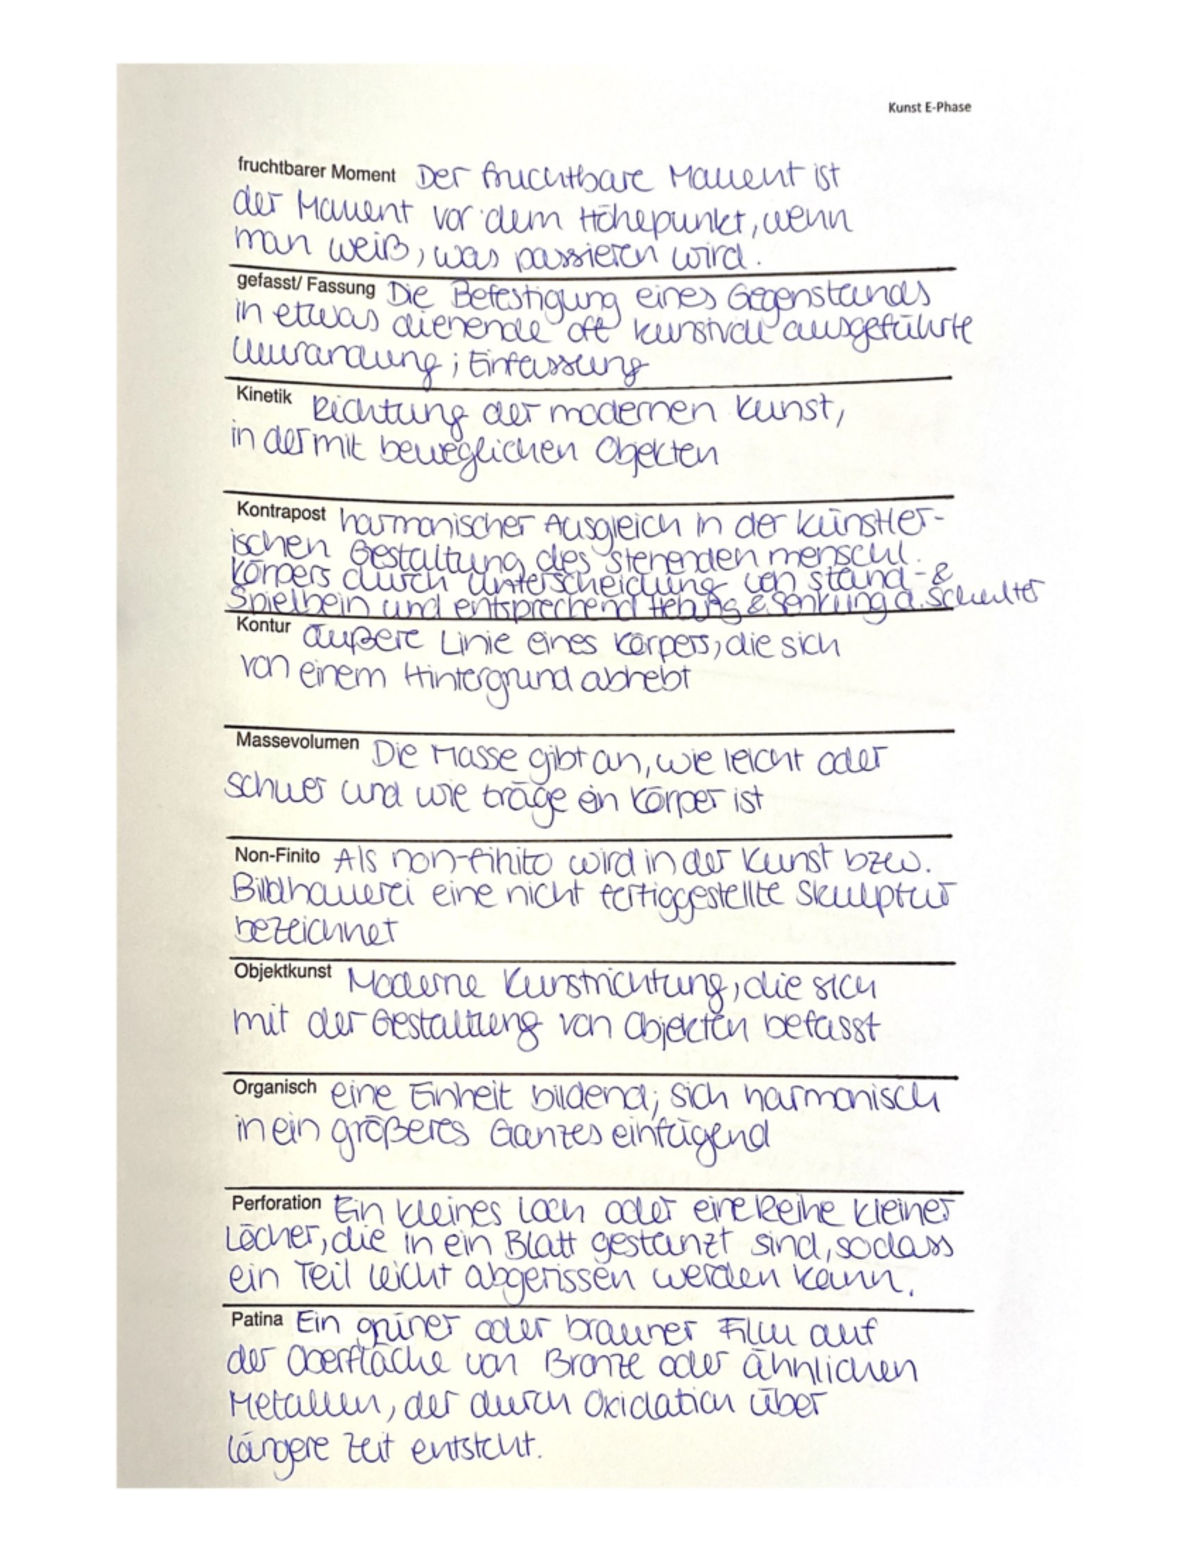 Kunst E-Phase
fruchtbarer Moment Der fruchtbare Moment ist
der Moment vor dem Höhepunkt, wenn
man weiß, was passieren wird.
gefasst/ Fassung Die Befestigung eines Gegenstands
in etwas dienende oft kunstvoll ausgeführte
Umrandung; Einfassung
Kinetik Richtung der modernen Kunst,
in der mit beweglichen Objekten
Kontrapost harmonischer Ausgleich in der künstler-
ischen Gestaltung des stehenden menschl.
Körpers durch Unterscheidung von Stand- &
Spielbein und entsprechend Hebung & Senkung d. Schulter
Kontur äußere Linie eines Körpers, die sich
von einem Hintergrund abhebt
Massevolumen Die Masse gibt an, wie leicht oder
schwer und wie träge ein Körper ist
Non-Finito Als non-finito wird in der Kunst bzw.
Bildhauerei eine nicht fertiggestellte Skulptur
bezeichnet
Objektkunst Moderne Kunstrichtung, die sich
mit der Gestaltung von Objekten befasst
Organisch eine Einheit bildend; sich harmonisch
in ein größeres Ganzes einfügend
Perforation Ein kleines Loch oder eine Reihe kleiner
Löcher, die in ein Blatt gestanzt sind, sodass
ein Teil leicht abgerissen werden kann.
Patina Ein grüner oder brauner Film auf
der Oberfläche von Bronze oder ähnlichen
Metallen, der durch Oxidation über
längere Zeit entsteht.